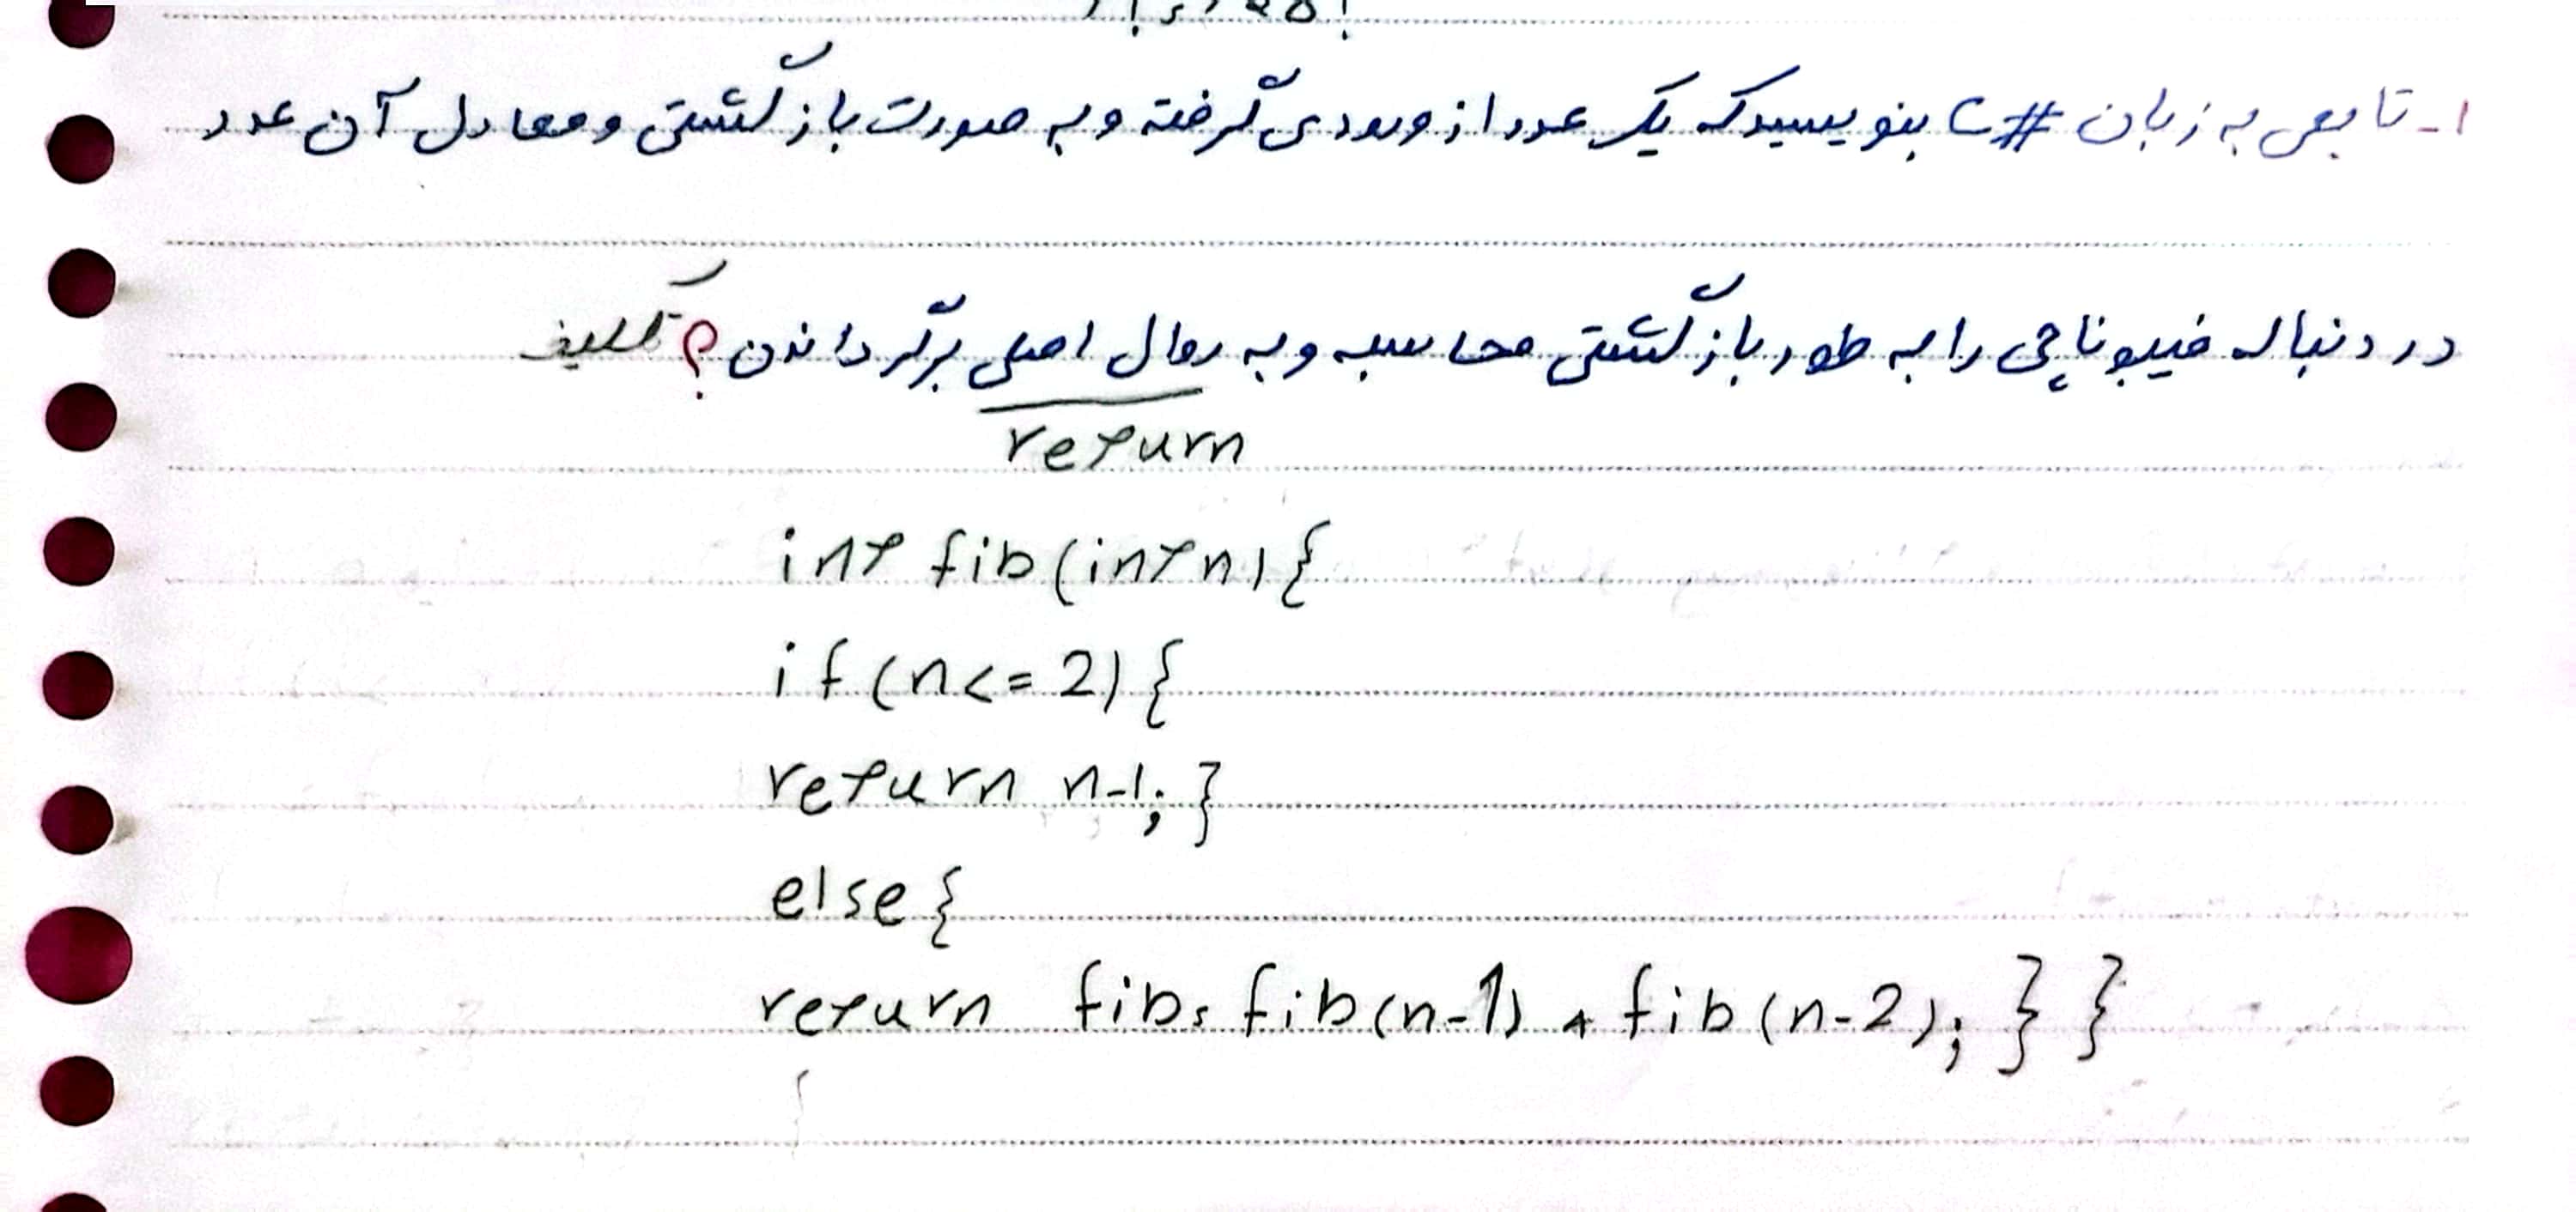 ۱- تابعی به زبان C# بنویسید که یک عدد از ورودی گرفته و به صورت بازگشتی و معادل آن عدد
در دنباله فیبوناچی را به طور بازگشتی محاسبه و به روال اصلی برگرداندن؟ تکلیف
return
int fib(int n) {
if (n <= 2) {
return n-1; }
else {
return fib = fib(n-1) + fib(n-2); } }